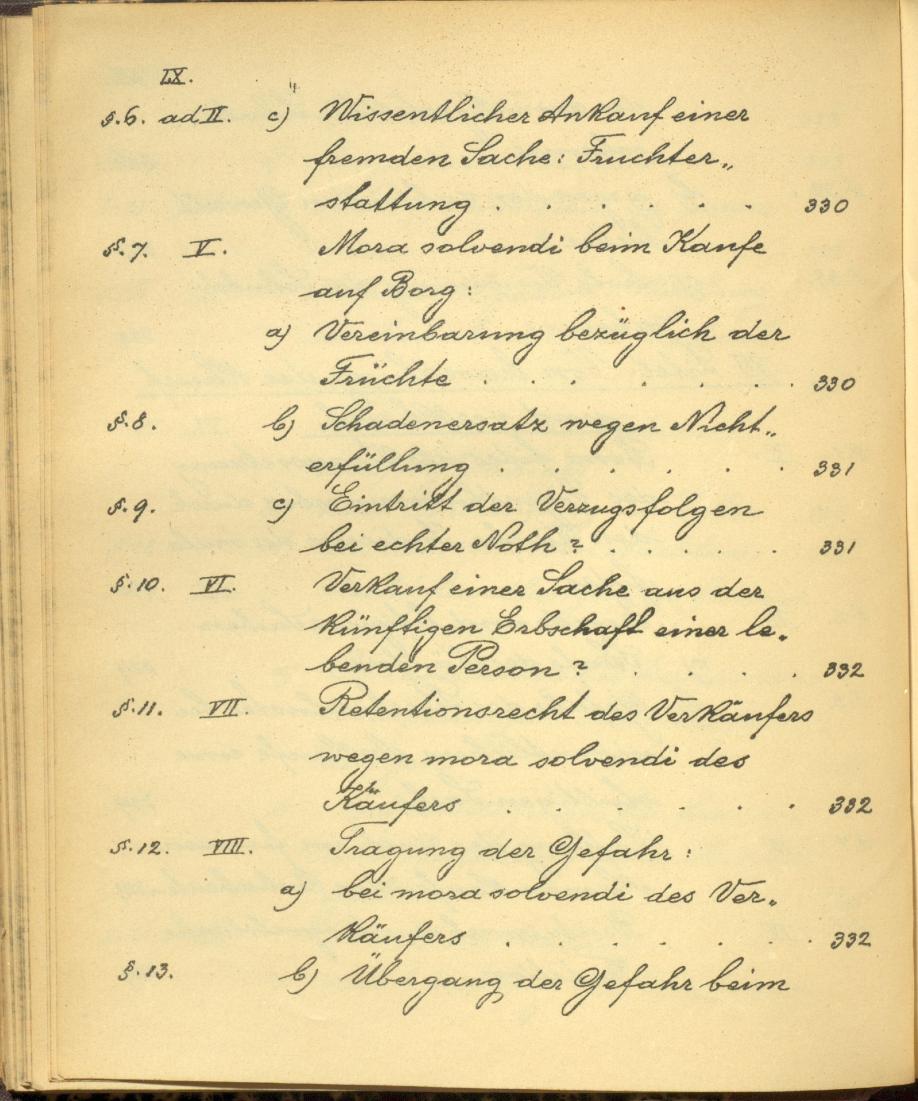 IX.
§.6. ad II. c) Wissentlicher Ankauf einer
fremden Sache: Fruchter„
stattung . . . . . . 330
§.7. V. Mora solvendi beim Kaufe
auf Borg:
a) Vereinbarung bezüglich der
Früchte . . . . . . . 330
§.8. b) Schadenersatz wegen Nicht„
erfüllung . . . . . . . 331
§.9. c) Eintritt der Verzugsfolgen
bei echter Noth ? . . . . . 331
§.10. VI. Verkauf einer Sache aus der
künftigen Erbschaft einer le„
benden Person ? . . . . . 332
§.11. VII. Retentionsrecht des Verkäufers
wegen mora solvendi des
Käufers . . . . . . 332
§.12. VIII. Tragung der Gefahr:
a) bei mora solvendi des Ver„
käufers . . . . . . . 332
§.13. b) Übergang der Gefahr beim